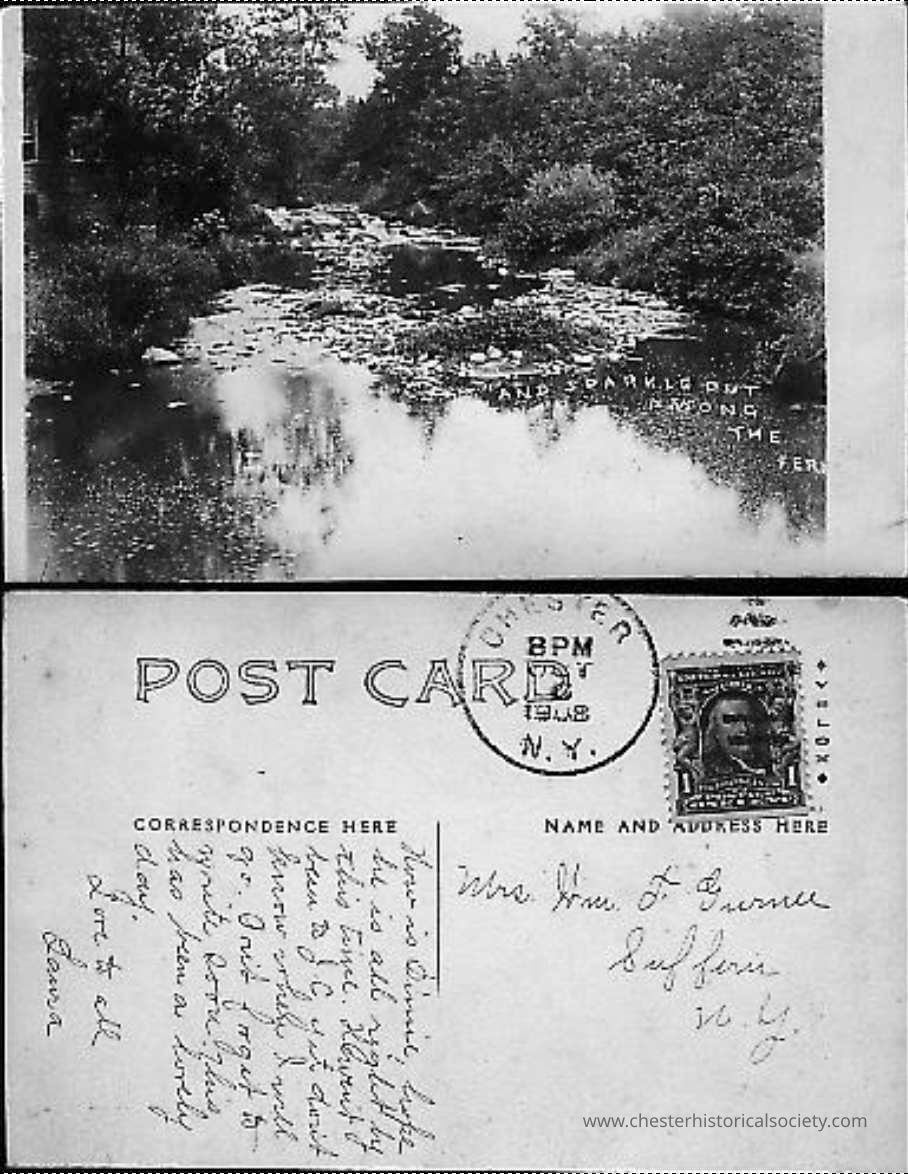 AND SPARKLE OUT
AMONG
THE
FER
POST CARD
CHESTER
8 PM
2
1908
N.Y.
1
CORRESPONDENCE HERE
NAME AND ADDRESS HERE
How is Jimmie, hope
he is all right by
this time. Haven't
been to J. C. yet don't
know when I will
go. Don't forget to
write soon. This
has been a lovely
day.
Love to all
Laura
Mrs. Wm. F. Gurnee
Suffern
N. Y.
www.chesterhistoricalsociety.com